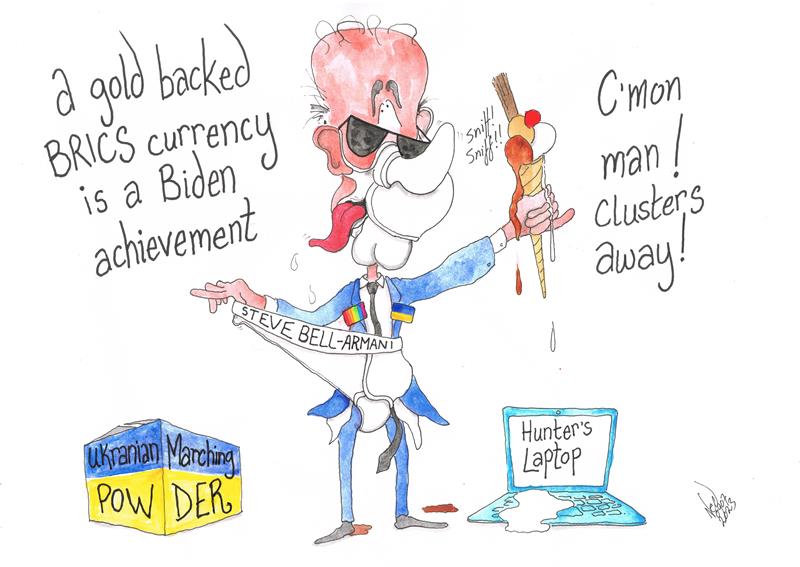 a gold backed
BRICS currency
is a Biden
achievement
sniff!
sniff!!
C'mon
man!
clusters
away!
STEVE BELL-ARMANI
UKranian Marching
POWDER
Hunter's
Laptop
2023